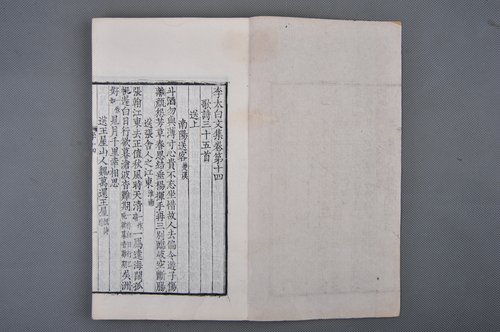 李太白文集卷第十四
歌詩三十五首
送上
南陽送客
斗酒勿與薄寸心貴不忘坐惜故人去偏令遊子傷
離顔怨芳草春思結垂楊揮手再三別臨岐空斷腸
送張舍人之江東
張翰江東去正值秋風時天清一鴈遠海闊孤
帆遲白日行欲暮滄波杳難期吳洲
好見月千里幸相思
送王屋山人魏萬還王屋